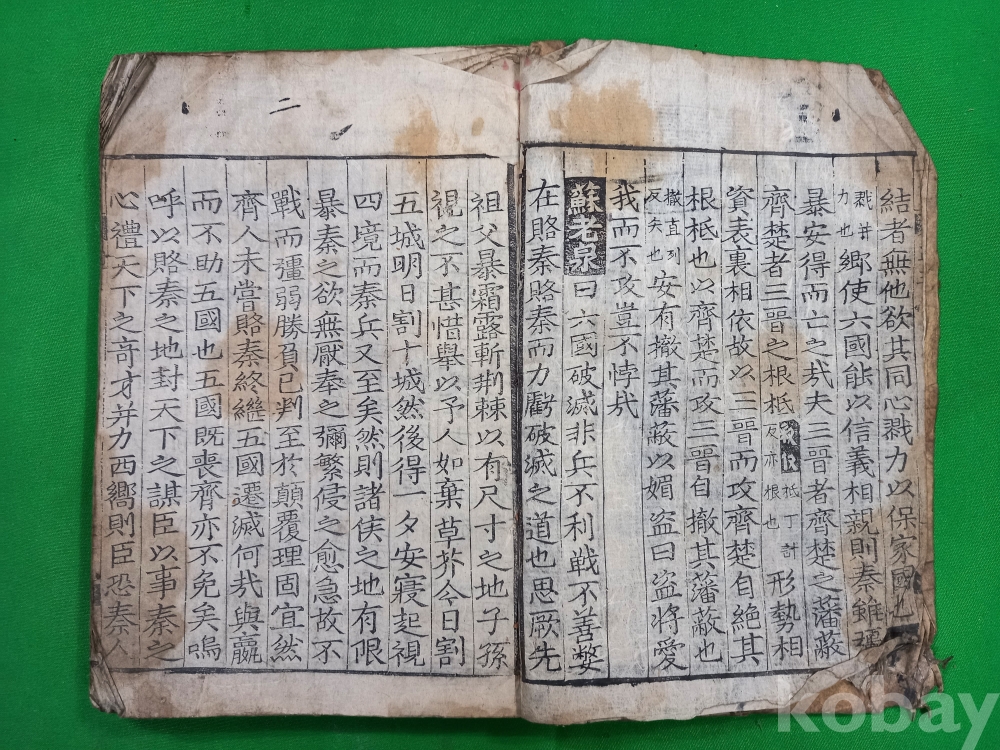 結者無他欲其同心戮力以保家國也
戮并力也鄉使六國能以信義相親則秦雖彊
暴安得而亡之㢤夫三晉者齊楚之藩蔽
齊楚者三晉之根柢柢丁計反亦根也形勢相
資表裏相依故以三晉而攻齊楚自絶其
根柢也以齊楚而攻三晉自撤其藩蔽也
撤直列反矣也安有撤其藩蔽以媚盜曰盜將愛
我而不攻豈不悖㢤
蘇老泉曰六國破滅非兵不利戰不善弊
在賂秦賂秦而力虧破滅之道也思厥先
二
祖父暴霜露斬荆棘以有尺寸之地子孫
視之不甚惜舉以予人如棄草芥今日割
五城明日割十城然後得一夕安寢起視
四境而秦兵又至矣然則諸侯之地有限
暴秦之欲無厭奉之彌繁侵之愈急故不
戰而彊弱勝負已判至於顛覆理固宜然
齊人未嘗賂秦終繼五國遷滅何㢤與嬴
而不助五國也五國既喪齊亦不免矣嗚
呼以賂秦之地封天下之謀臣以事秦之
心禮天下之奇才并力西嚮則臣恐秦人
kobay